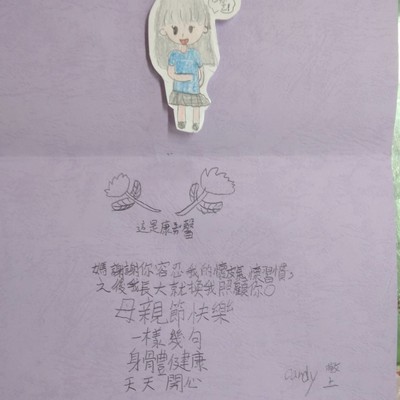 這是康乃馨
媽謝謝你容忍我的 習慣,
之後我長大就換我照顧你。
母親節快樂
一樣幾句
身體健康
天天開心
candy 敬上